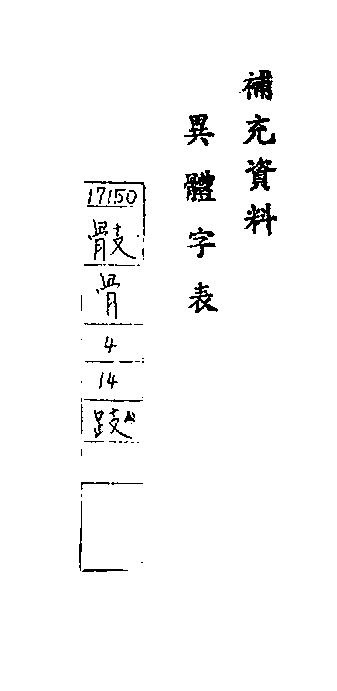 補充資料
異體字表
17150
骳
骨
4
14
跂